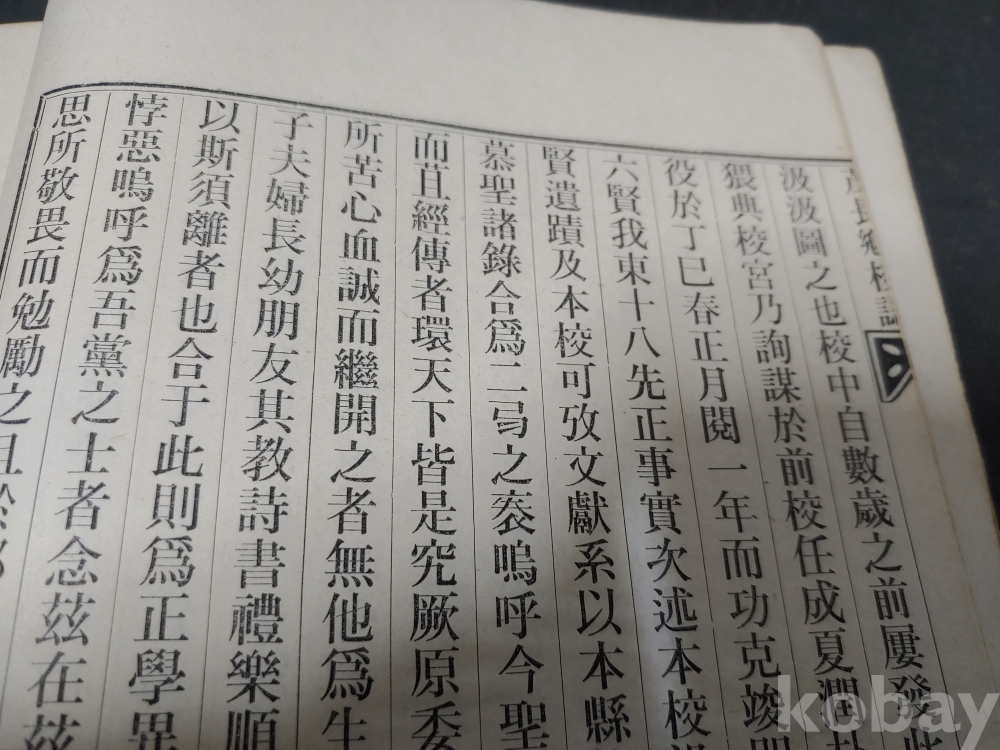 長鄕校誌
汲汲圖之也校中自數歲之前屢發
猥典校宮乃詢謀於前校任成夏潤
役於丁巳春正月閱一年而功克竣
六賢我東十八先正事實次述本校
賢遺蹟及本校可攷文獻系以本縣
慕聖諸錄合爲二弓之袠嗚呼今聖
而且經傳者環天下皆是究厥原委
所苦心血誠而繼開之者無他爲生
子夫婦長幼朋友其教詩書禮樂順
以斯須離者也合于此則爲正學異
悖惡嗚呼爲吾黨之士者念茲在茲
思所敬畏而勉勵之且於
kobay